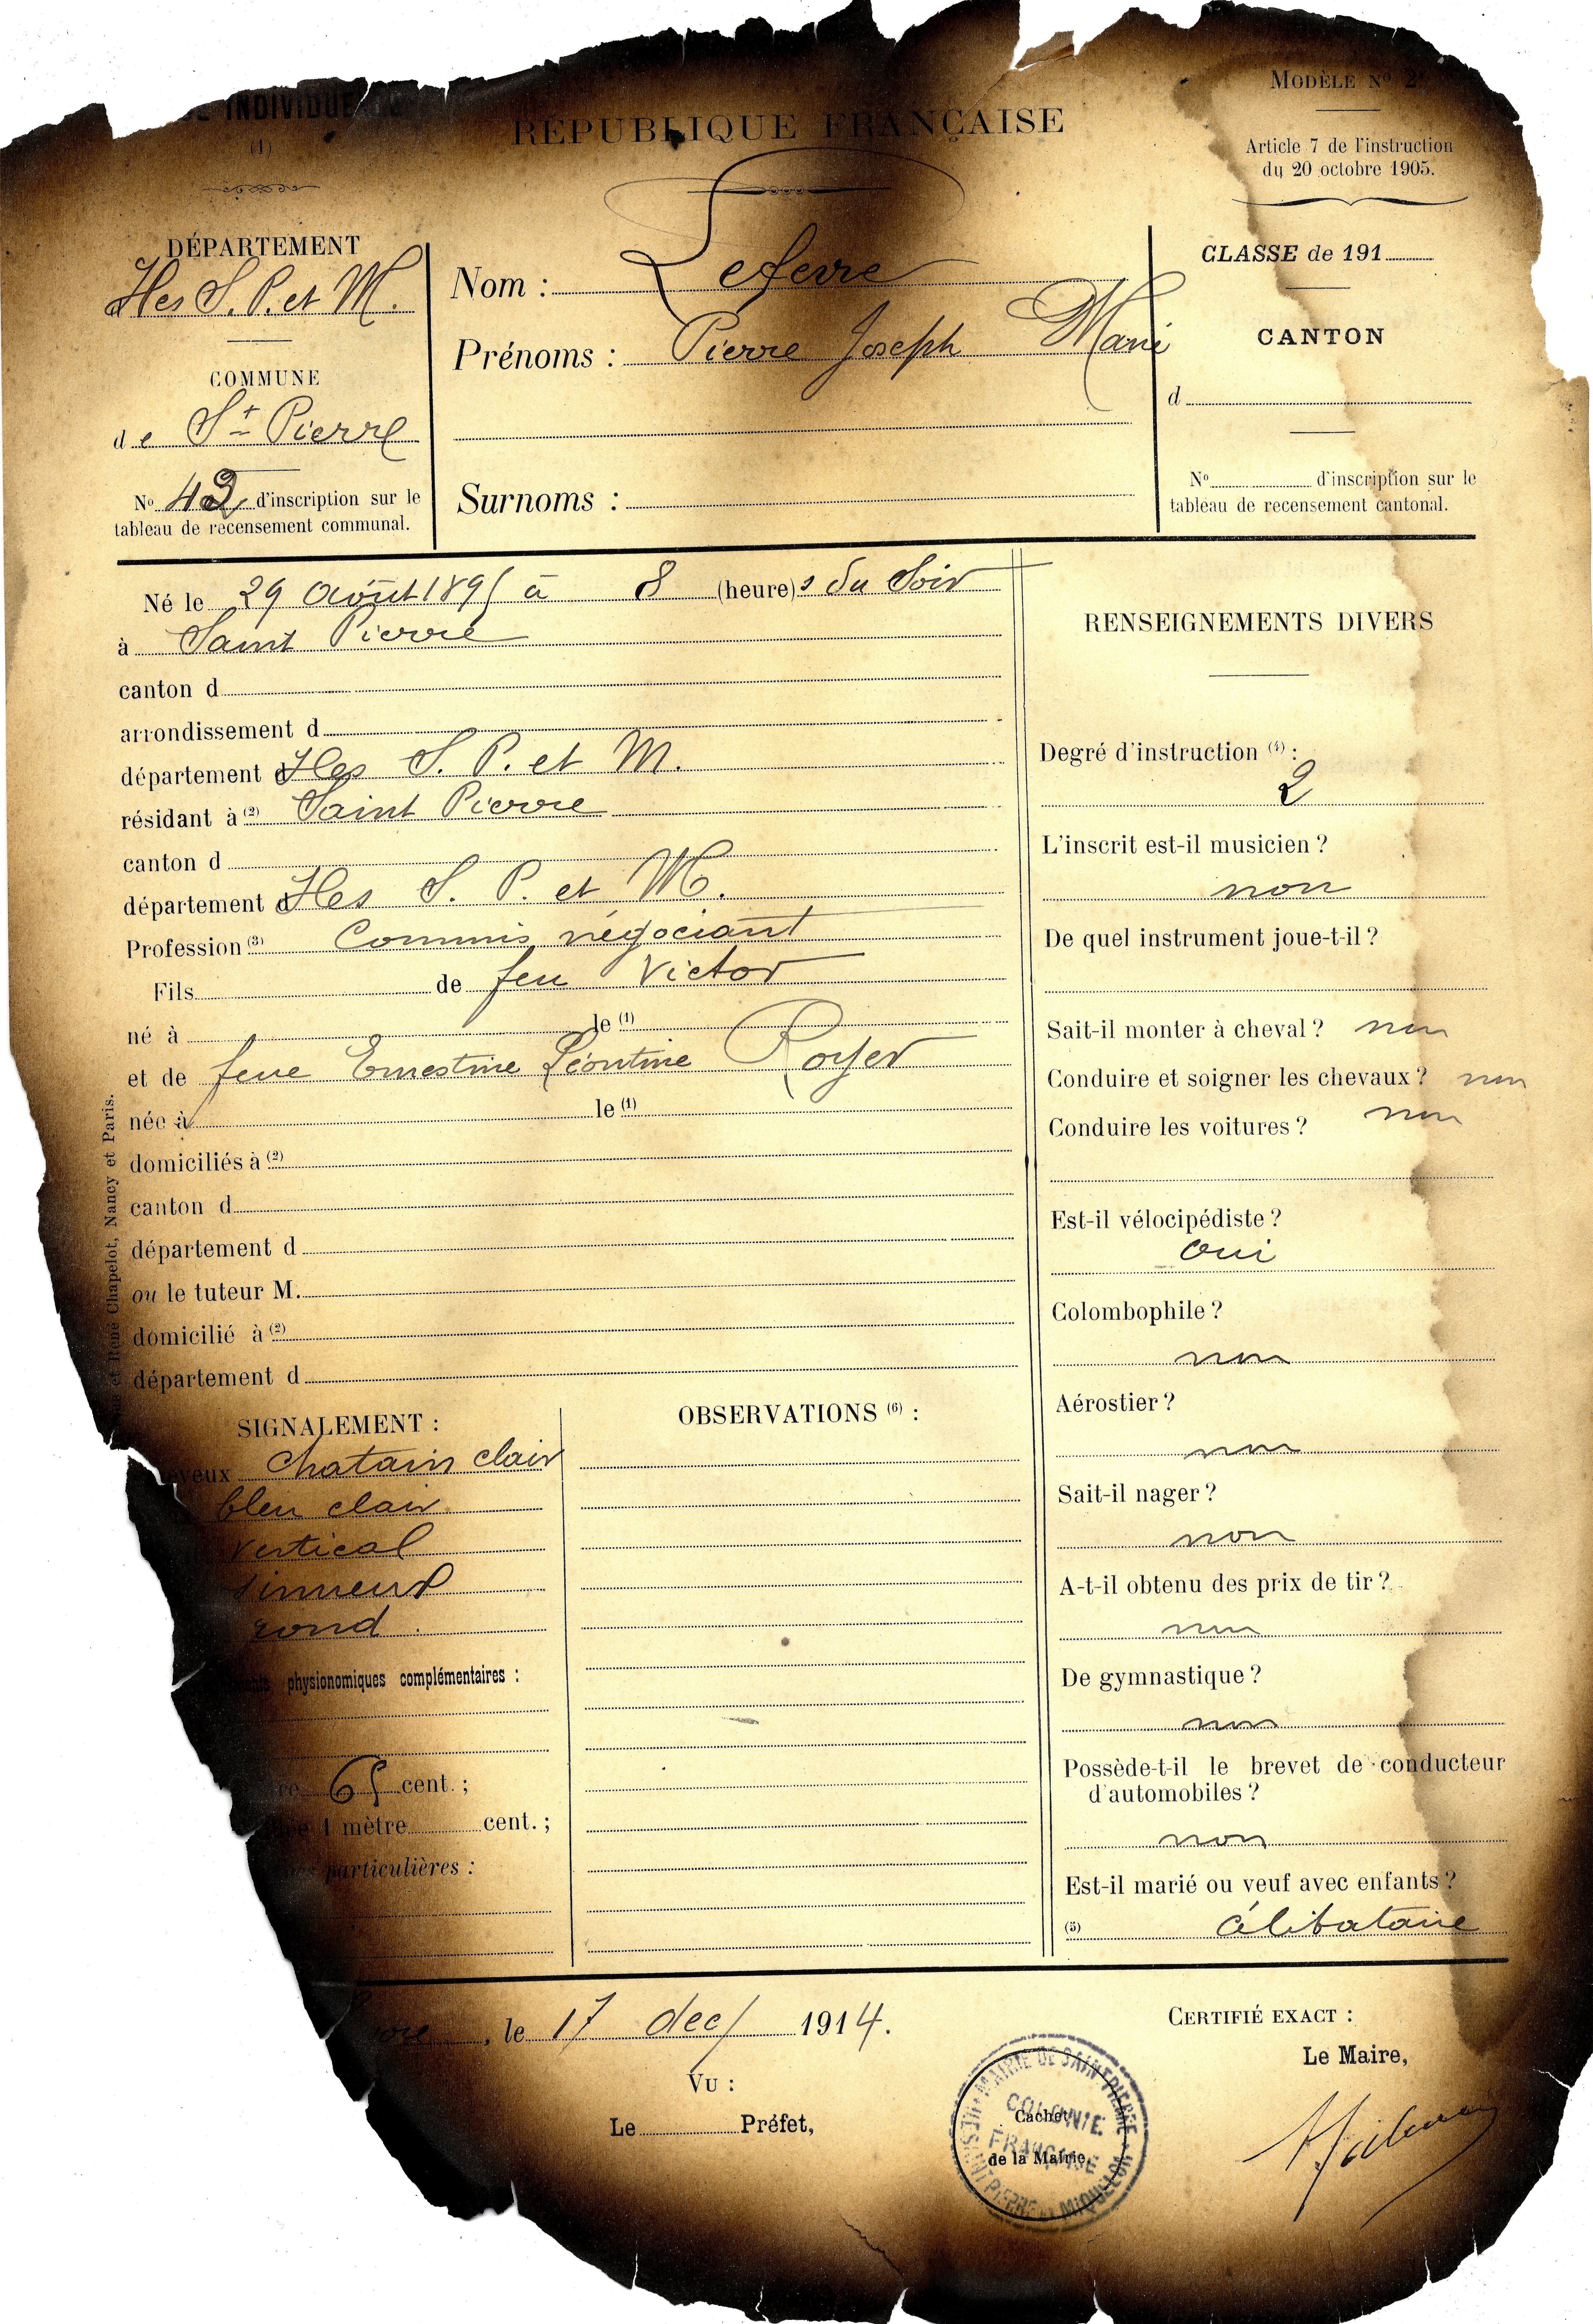 INDIVIDUE
(1)
DÉPARTEMENT
Iles S. P. et M.
COMMUNE
de St Pierre
No 42 d'inscription sur le
tableau de recensement communal.
RÉPUBLIQUE FRANÇAISE
Nom : Lefevre
Prénoms : Pierre Joseph Marie
Surnoms :
MODÈLE No 2
Article 7 de l'instruction
du 20 octobre 1905.
CLASSE de 191
CANTON
d
No d'inscription sur le
tableau de recensement cantonal.
Né le 29 Août 1895 à 8 (heure)s du Soir
à Saint Pierre
canton d
arrondissement d
département d Iles S. P. et M.
résidant à (2) Saint Pierre
canton d
département d Iles S. P. et M.
Profession (3) Commis négociant
Fils de feu Victor
né à le (1)
et de feue Ernestine Léontine Royer
née à le (1)
domiciliés à (2)
canton d
département d
ou le tuteur M.
domicilié à (2)
département d
et René Chapelot, Nancy et Paris.
SIGNALEMENT :
eveux Chatain clair
bleu clair
vertical
sinueux
rond.
physionomiques complémentaires :
re 65 cent. ;
1 mètre cent. ;
particulières :
OBSERVATIONS (6) :
RENSEIGNEMENTS DIVERS
Degré d'instruction (4) :
2
L'inscrit est-il musicien ?
non
De quel instrument joue-t-il ?
Sait-il monter à cheval ? non
Conduire et soigner les chevaux ? non
Conduire les voitures ? non
Est-il vélocipédiste ?
oui
Colombophile ?
non
Aérostier ?
non
Sait-il nager ?
non
A-t-il obtenu des prix de tir ?
non
De gymnastique ?
non
Possède-t-il le brevet de conducteur
d'automobiles ?
non
Est-il marié ou veuf avec enfants ?
(5) célibataire
, le 17 dec/ 1914.
VU :
Le Préfet,
MAIRIE DE SAINT PIERRE
ILES SAINT PIERRE ET MIQUELON
COLONIE
FRANÇAISE
Cachet
de la Mairie.
CERTIFIÉ EXACT :
Le Maire,